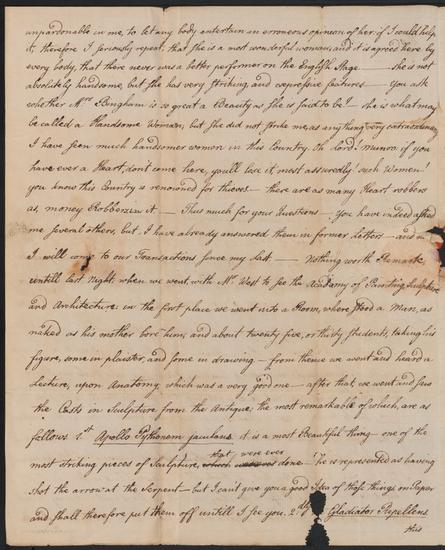 unpardonable in me, to let any body entertain an erroneous opinion of her if I could help
it, therefore I seriously repeat, that she is a most wonderful woman, and it is agreed here by
every body, that there never was a better performer on the English Stage — she is not
absolutely handsome, but she has very striking and expressive features — You ask
whether Mrs Bingham is so great a Beauty as she is said to be? — she is what may
be called a Handsome Woman, but she did not strike me, as any thing very extraordinary
I have seen much handsomer women in this Country. Oh Lord! Munor if you
have ever a Heart, dont come here, you'll lose it most assuredly! such Women!
you know this Country is renowned for thieves — there are as many Heart robbers
as, money Robbers in it — Thus much for your Questions — You have indeed asked
me several others, but I have already answered them in former letters — and
I will come to our Transactions since my last — Nothing worth Remark
untill last Night, when we went with Mr West to see the Academy of Painting, Sculpture
and Architecture. in the first place we went into a Room, where stood a Man, as
naked as his mother bore him, and about twenty five, or thirty students, taking his
figure, some in plaister, and some in drawing — from thence we went and heard a
Lecture, upon Anatomy, which was a very good one — after that, we went and saw
the Casts in Sculpture from the Antique, the most remarkable of which, are as
follows 1st Apollo Pythonem jaculans it is a most Beautiful thing — one of the
most striking pieces of Sculpture, that were ever done — he is represented as having
shot the arrow at the Serpent — but I can't give you a good Idea of those things on Paper
and shall therefore put them off untill I see you. 2dly Gladiator Repellens
this